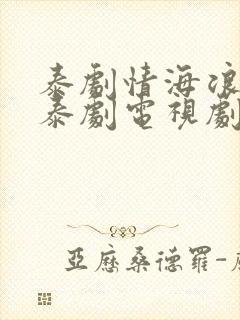 泰劇情海浪
泰劇電視劇
亞歷桑德羅-